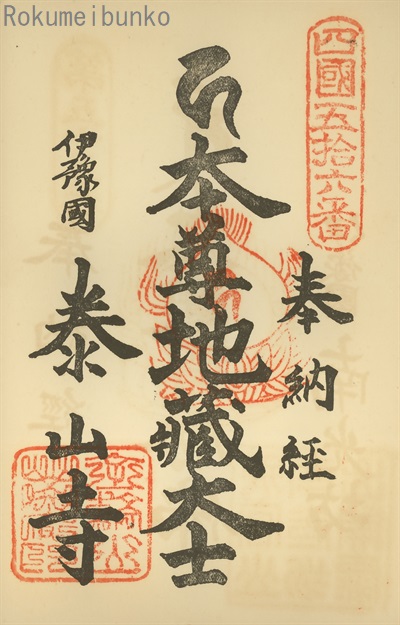 Rokumeibunko
四國五拾六番
奉納経
本尊地藏大士
伊豫國
泰山寺